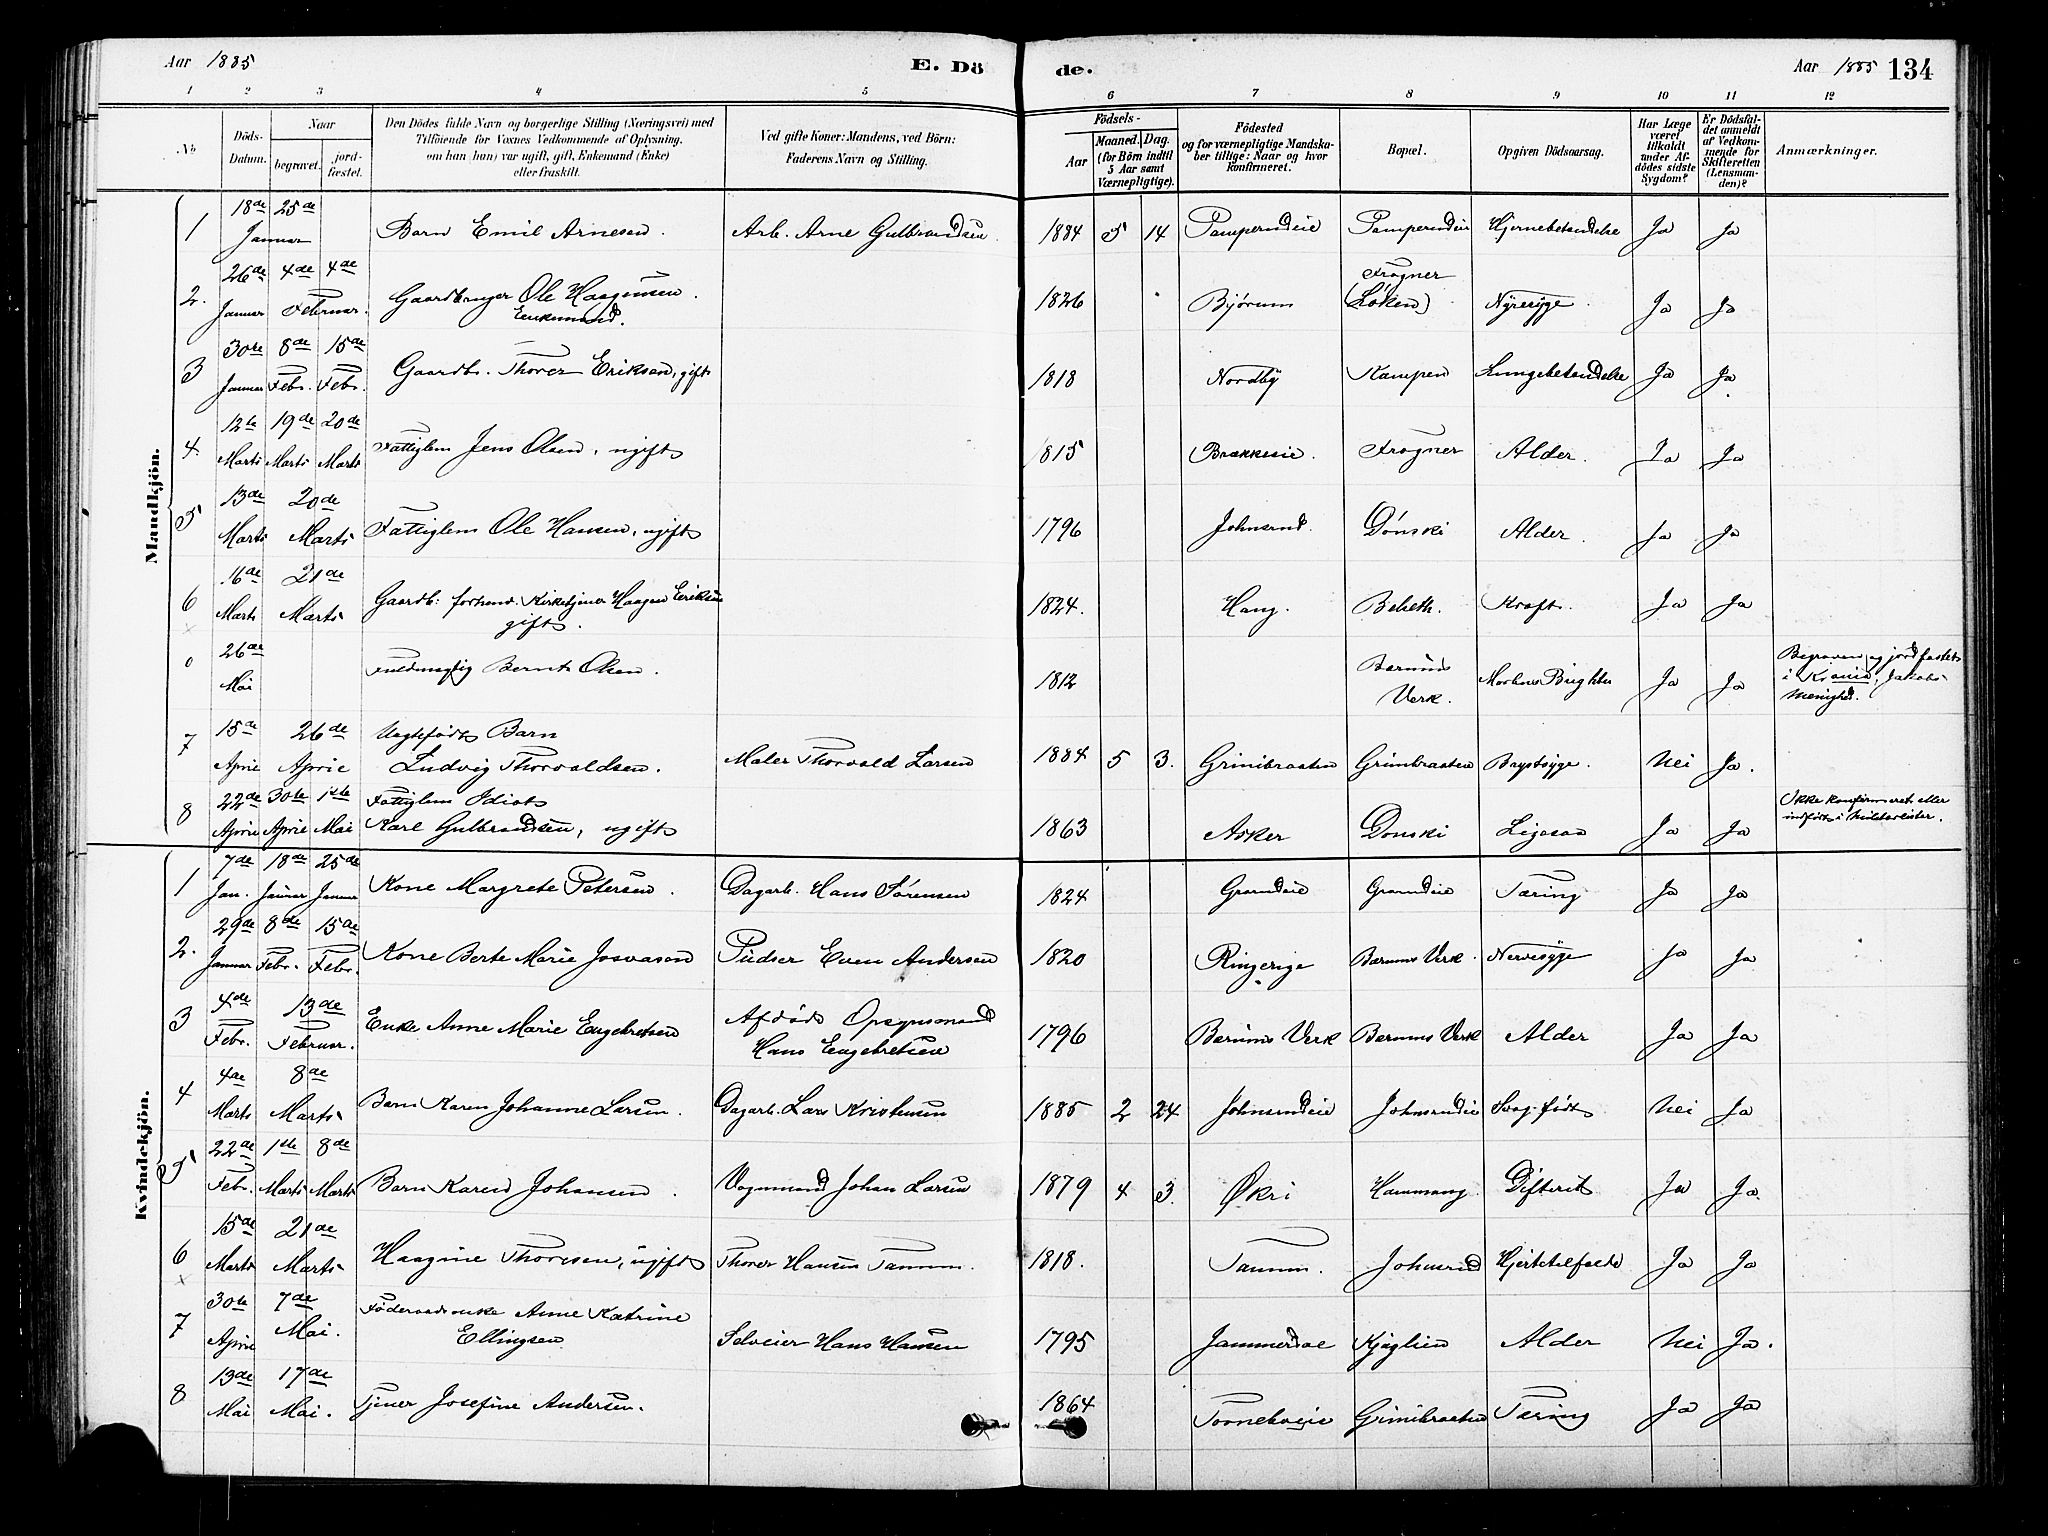 Aar 1885
E. Dö
de.
Aar 1885 134
1 2 3 4 5 6 7 8 9 10 11 12
No
Döds-Datum.
Naar
begravet.
jord-fæstet.
Den Dödes fulde Navn og borgerlige Stilling (Næringsvei) med
Tilföiende for Voxnes Vedkommende af Oplysning,
om han (hun) var ugift, gift, Enkemand (Enke)
eller fraskilt.
Ved gifte Koner: Mandens, ved Börn:
Faderens Navn og Stilling.
Födsels-
Aar
Maaned. Dag.
(for Börn indtil
5 Aar samt
Værnepligtige).
Födested
og for værnepligtige Mandska-
ber tillige: Naar og hvor
Konfirmeret.
Bopæl.
Opgiven Dödsaarsag.
Har Læge
været
tilkaldt
under Af-
dödes sidste
Sygdom?
Er Dödsfal-
det anmeldt
af Vedkom-
mende for
Skifteretten
(Lensman-
den)?
Anmærkninger.
Mandkjön.
1 18de Januar 25de Barn Emil Arnesen. Arb. Arne Gulbrandsen. 1884 5 14 Pamperudeie Pamperudeie Hjernebetændelse Ja Ja
2. 26de Januar 4de 4de Februar. Gaardbruger Ole Haagensen. Enkemand. 1826 Bjørum Frogner (Løken) Nyresyge. Ja Ja
3 30te Januar 8de Febr. 15de Febr. Gaardb. Thorer Eriksen, gift 1818 Nordby Kampen Lungebetændelse Ja Ja.
4 12te Marts 19de Marts 20de Marts Fattiglem Jens Olsen, ugift 1815 Brækkeeie. Frogner Alder. Ja Ja
5 13de Marts 20de Marts Fattiglem Ole Hansen, ugift 1796 Johnsrud. Dønski Alder. Ja Ja
6 16de Marts 21de Marts Gaardb: forhenv. Kirketjener Haagen Eriksen gift. 1824. Haug. Beheth. Kræft. Ja Ja
0 26de Mai Fuldmægtig Bernt Olsen. 1812 Bærums Verk. Morbus Brightii Ja Ja Begraven og jordfæstet i Krania, Jakobs Menighed.
7 15de April 26de April Uægtefødt Barn Ludvig Thorvaldsen. Maler Thorvald Larsen 1884 5 3. Grinibraaten Grinibraaten Brystsyge. Nei Ja.
8 22de April 30te April 1ste Mai Fattiglem Idiot Karl Gulbrandsen, ugift 1863 Asker Dønski Ligesaa Ja Ja Ikke konfirmeret eller indført i Militærlister.
Kvindekjön.
1 7de Jan. 18de Januar 25de Januar Kone Margrete Petersen. Dagarb. Hans Sørensen 1824 Gramdeie Gramdeie Tæring Ja Ja
2. 29de Januar 8de Febr. 15de Febr. Kone Berte Marie Josvasen Pudser Even Andersen 1820 Ringerige Bærums Verk. Nervesyge Ja Ja
3 4de Febr. 13de Februar. Enke Anne Marie Engebretsen Afdøde Opsynsmand Hans Engebretsen 1796 Bærums Verk Bærums Verk Alder Ja Ja
4 4de Marts 8de Marts Barn Karen Johanne Larsen. Dagarb. Lars Kristensen 1885 2 24 Johnsrudeie Johnsrudeie Svag født Nei Ja
5 22de Febr. 1ste Marts 8de Marts Barn Karen Johansen. Vognmand Johan Larsen 1879 4 3. Økri Hammang. Difterit Ja Ja.
6 15de Marts 21de Marts Haagine Thoresen, ugift Thorer Hansen Tanum. 1818. Tanum. Johnsrud Hjertetilfælde Ja Ja
7 30te April 7de Mai. Føderaadsenke Anne Katrine Ellingsen Selveier Hans Hansen 1795 Jammerdal Kjaglien Alder Nei Ja.
8 13de Mai 17de Mai. Tjener Josefine Andersen. 1864 Grinibraaten Tæring Ja Ja